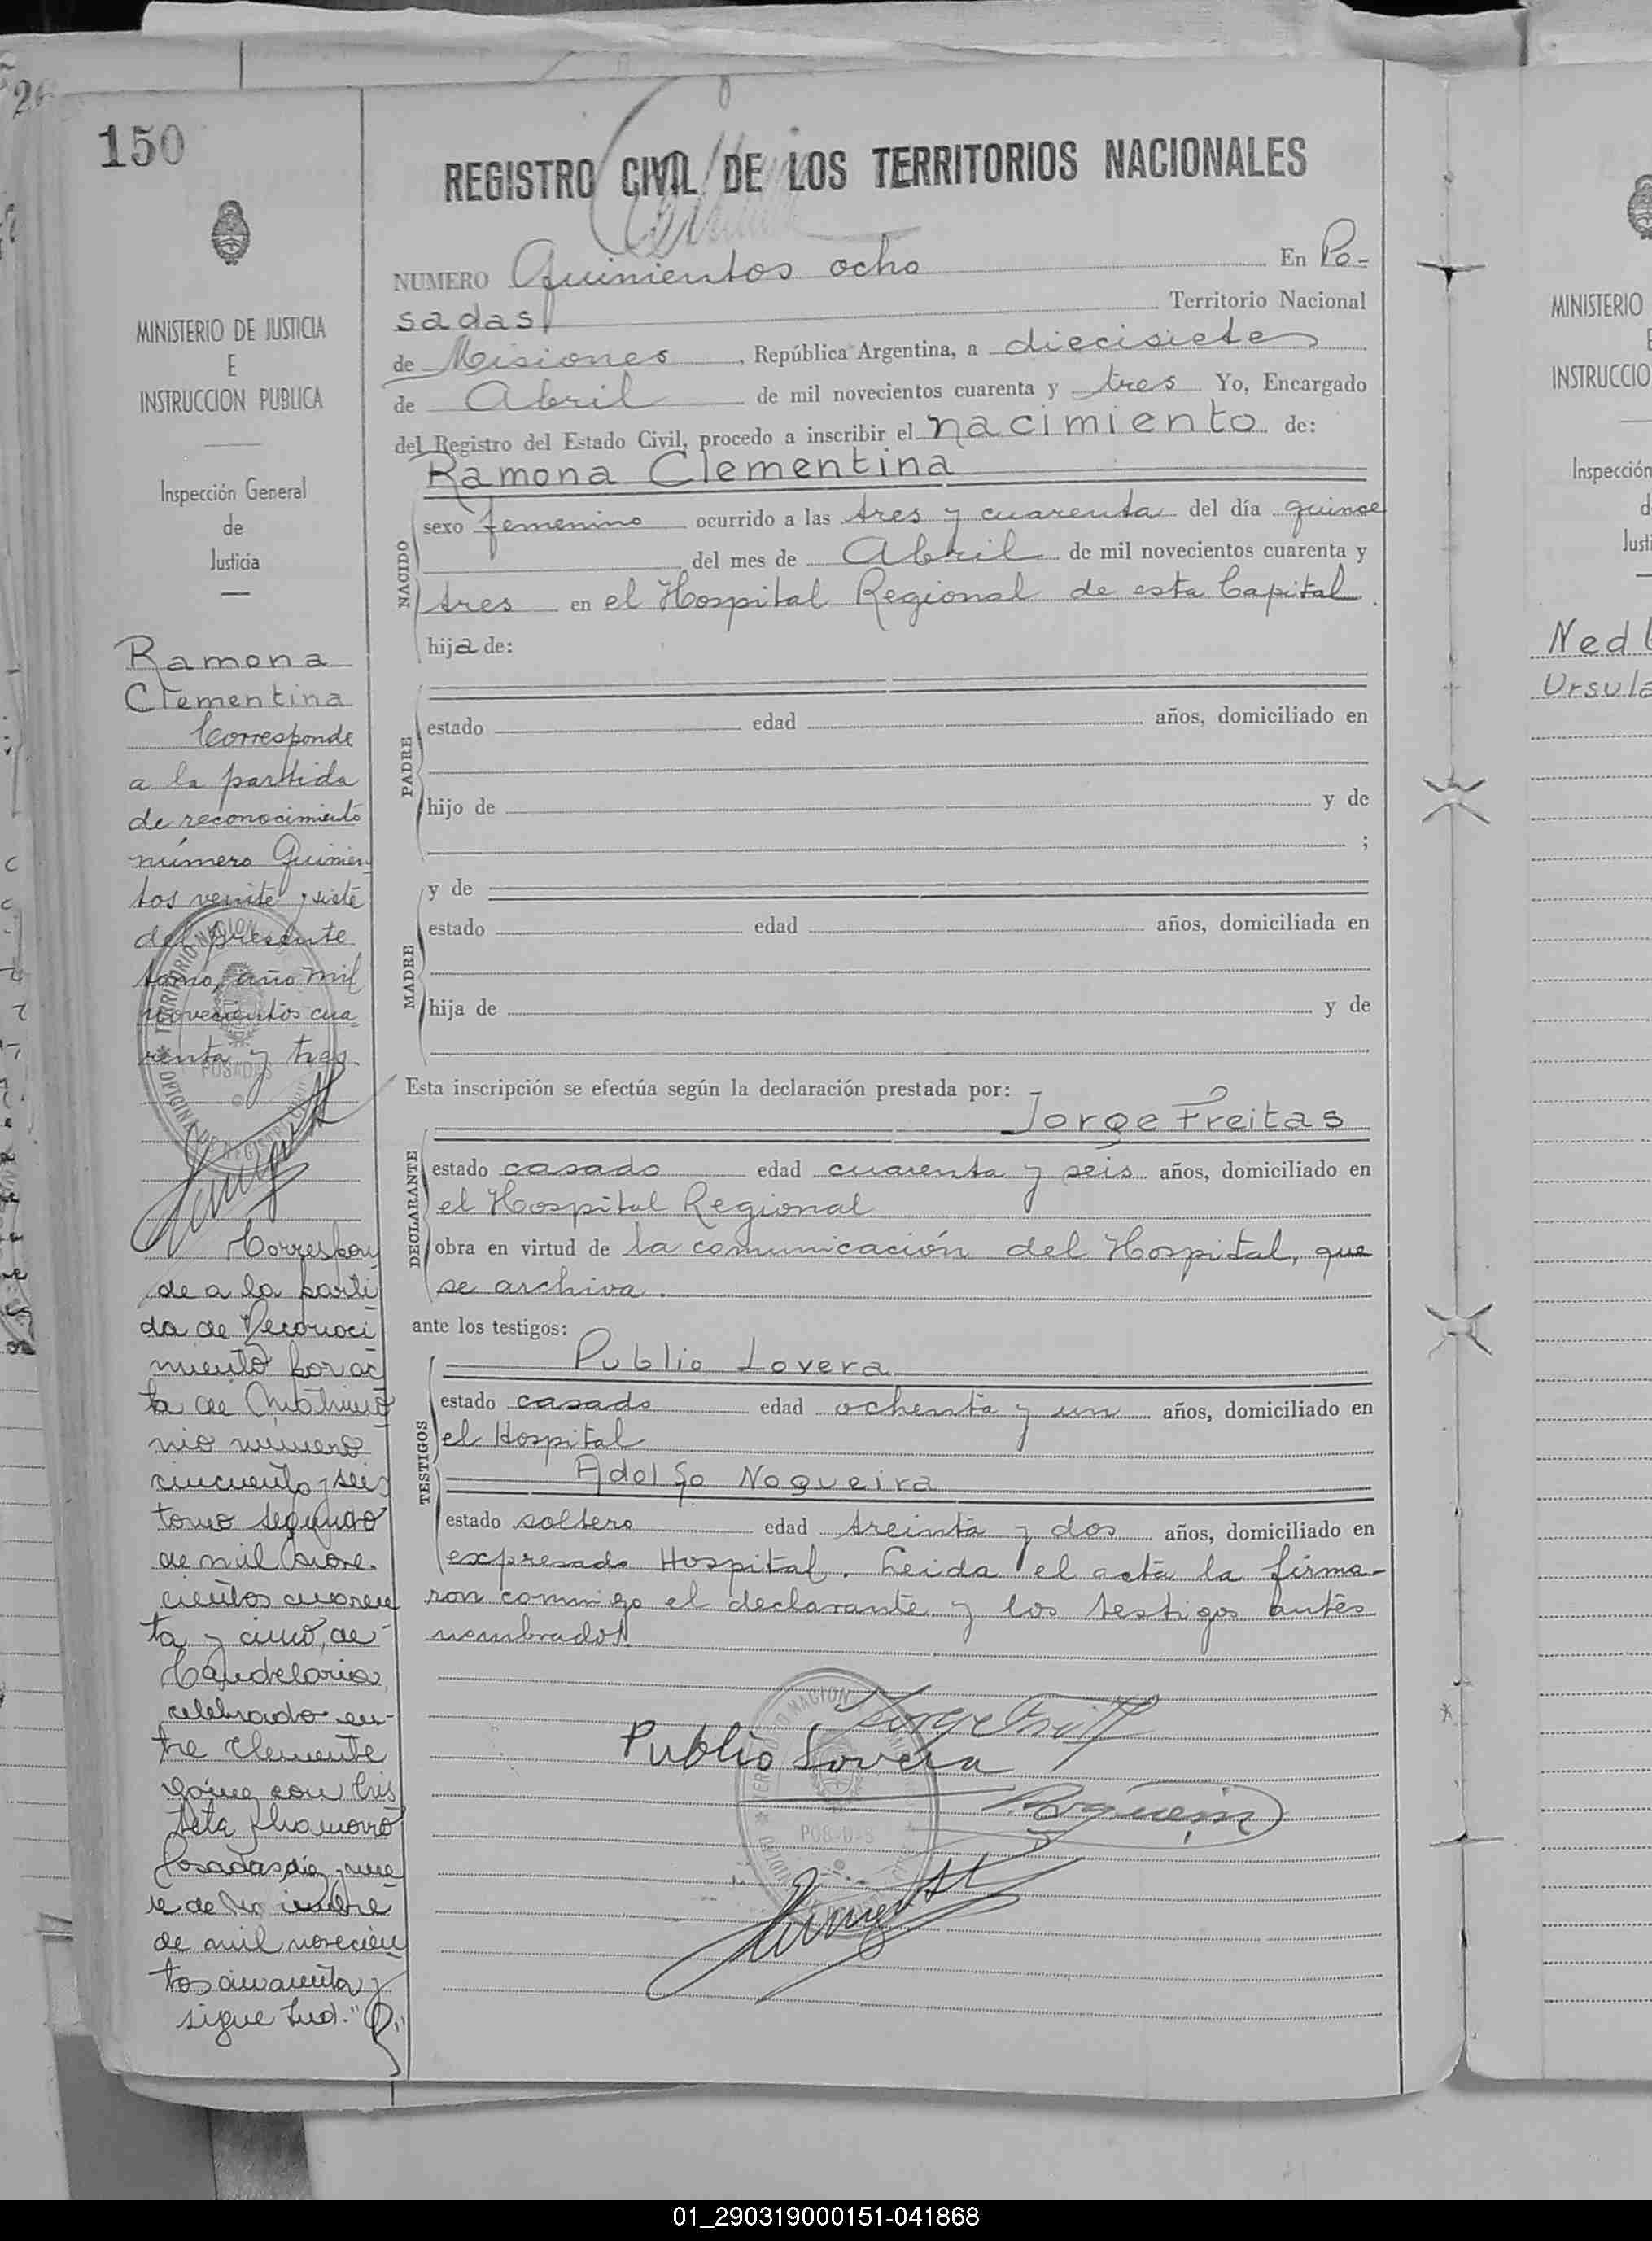 150
MINISTERIO DE JUSTICIA
E
INSTRUCCION PUBLICA
Inspección General
de
Justicia
Ramona
Clementina
Corresponde
a la partida
de reconocimiento
número Quinien
tos veinte y siete
del presente
tomo, año mil
novecientos cua
renta y tres
Correspon
de a la parti
da de Reconoci
miento por ac
ta de Matrimo
nio número
cincuenta y seis
tomo segundo
de mil nove-
cientos cuaren
ta y cinco, de
Candelaria,
celebrado en-
tre Clemente
con Cris
Posadas, diez y nue
ve de
de mil novecien
tos cuarenta y
sigue
REGISTRO CIVIL DE LOS TERRITORIOS NACIONALES
NUMERO Quinientos ocho En Po-
sadas Territorio Nacional
de Misiones, República Argentina, a diecisiete
de Abril de mil novecientos cuarenta y tres Yo, Encargado
del Registro del Estado Civil, procedo a inscribir el nacimiento de:
Ramona Clementina
NACIDO
sexo femenino ocurrido a las tres y cuarenta del día quince
del mes de Abril de mil novecientos cuarenta y
tres en el Hospital Regional de esta Capital.
hija de:
PADRE
estado edad años, domiciliado en
hijo de y de
;
MADRE
y de
estado edad años, domiciliada en
hija de y de
Esta inscripción se efectúa según la declaración prestada por:
Jorge Freitas
DECLARANTE
estado casado edad cuarenta y seis años, domiciliado en
el Hospital Regional
obra en virtud de la comunicación del Hospital, que
se archiva.
ante los testigos:
TESTIGOS
Publio Lovera
estado casado edad ochenta y un años, domiciliado en
el Hospital
Adolfo Nogueira
estado soltero edad treinta y dos años, domiciliado en
expresado Hospital. Leida el acta la firma-
ron conmigo el declarante y los testigos antes
nombrados.
Publio Lovera
POSADAS
MINISTERIO
INSTRUCCIO
Inspección
d
Justi
Ned
Ursula
01_290319000151-041868